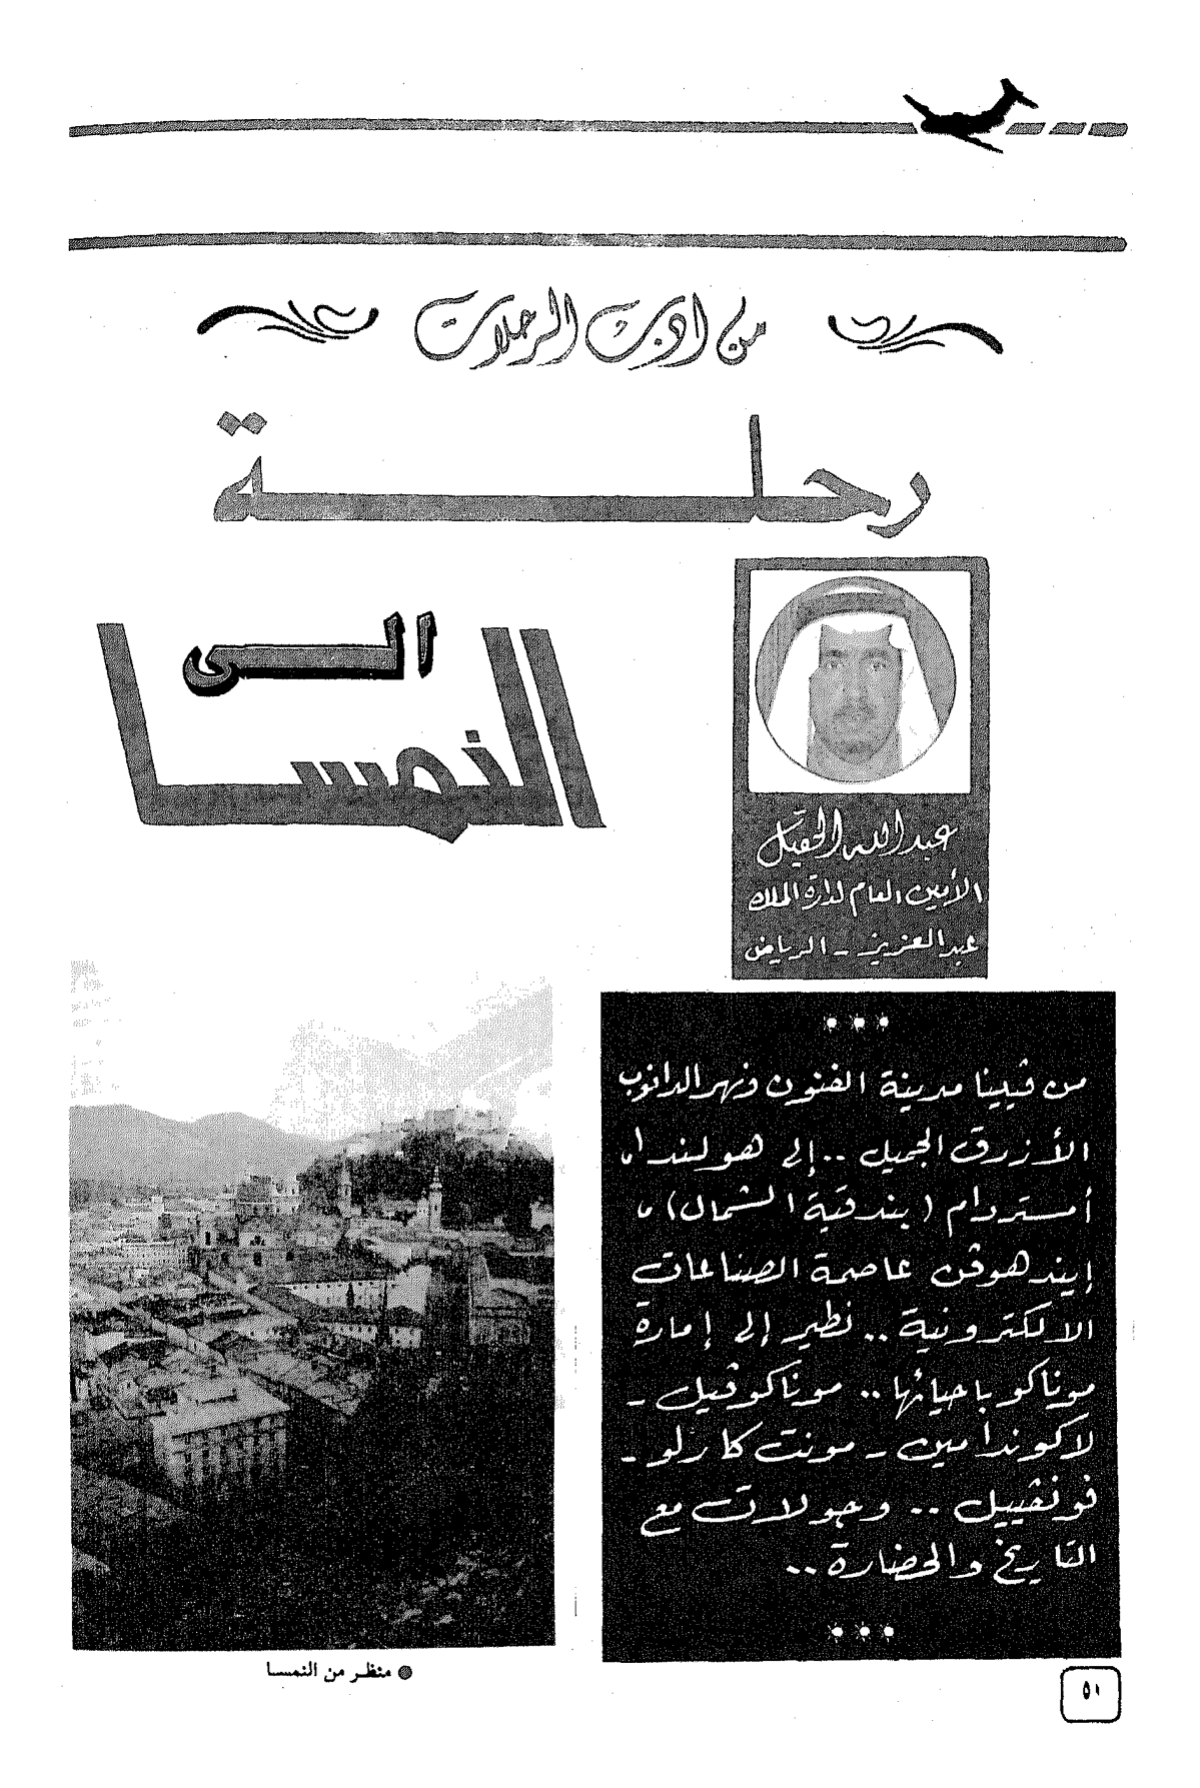 من أدب الرحلات
رحلة
الى
النمسا
عبد الله الحقيل
الأمين العام لدارة الملك
عبد العزيز - الرياض
من ڤيينا مدينة الفنون ونهر الدانوب
الأزرق الجميل .. إلى هولندا،
أمستردام (بندقية الشمال)،
إيندهوڤن عاصمة الصناعات
الالكترونية .. نطير إلى إمارة
موناكو باحيائها .. موناكوڤيل -
لاكوندامين - مونت كارلو -
فونڤييل .. وجولات مع
التاريخ والحضارة ..
منظر من النمسا
٥١